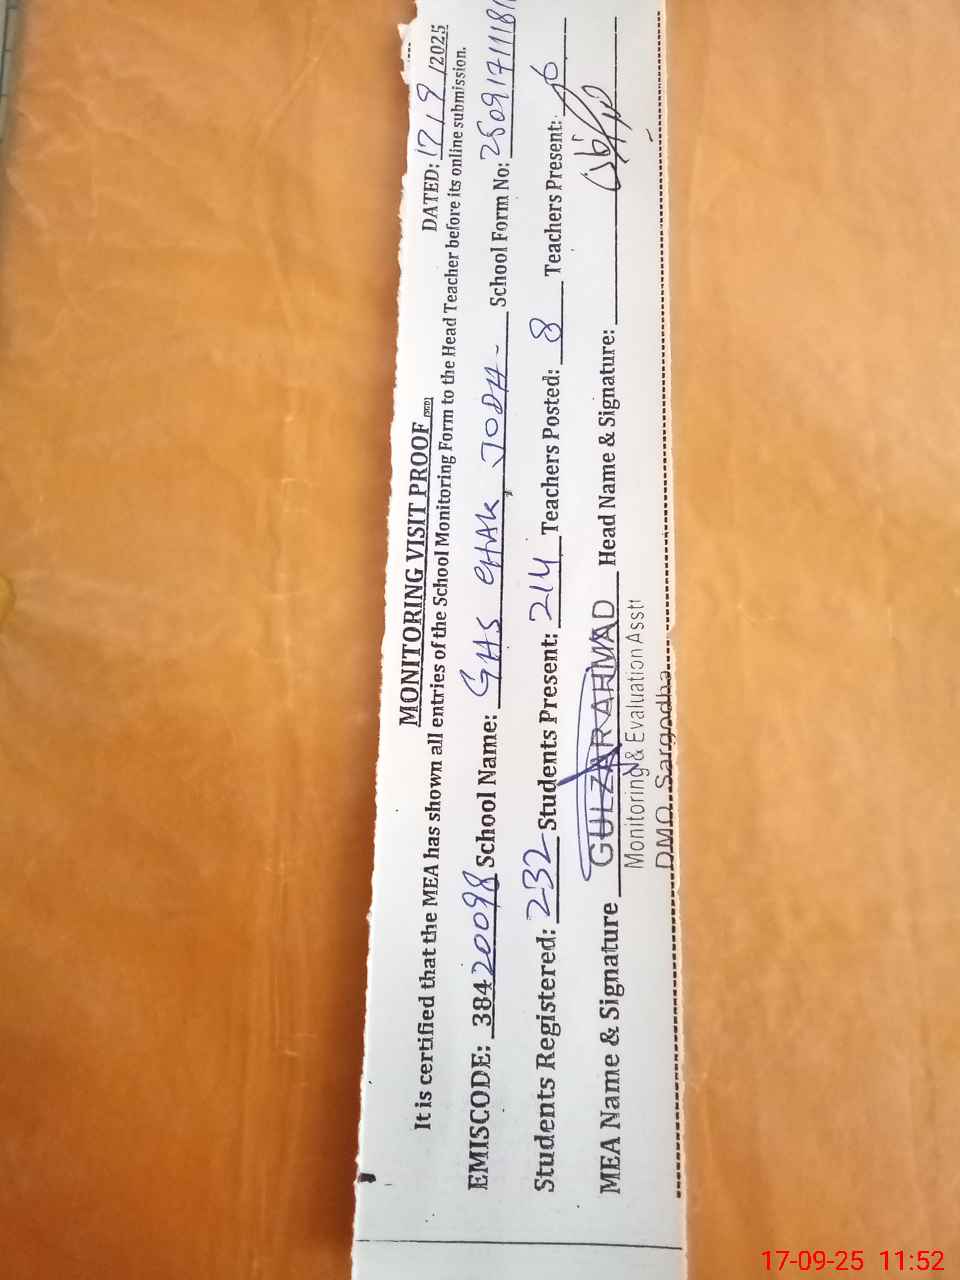 MONITORING VISIT PROOF (SED) DATED: 17/9/2025
It is certified that the MEA has shown all entries of the School Monitoring Form to the Head Teacher before its online submission.
EMISCODE: 38420098 School Name: GHS CHAK JODH - School Form No:
Students Registered: 232 Students Present: 214 Teachers Posted: 8 Teachers Present: 6
MEA Name & Signature GULZAR AHMAD Head Name & Signature:
Monitoring & Evaluation Asstt
DMO Sargodha
17-09-25 11:52